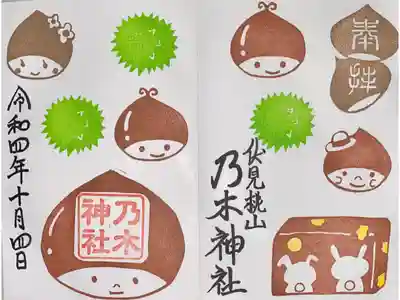 奉拝
伏見桃山
乃木神社
乃木
神社
令和四年十月四日